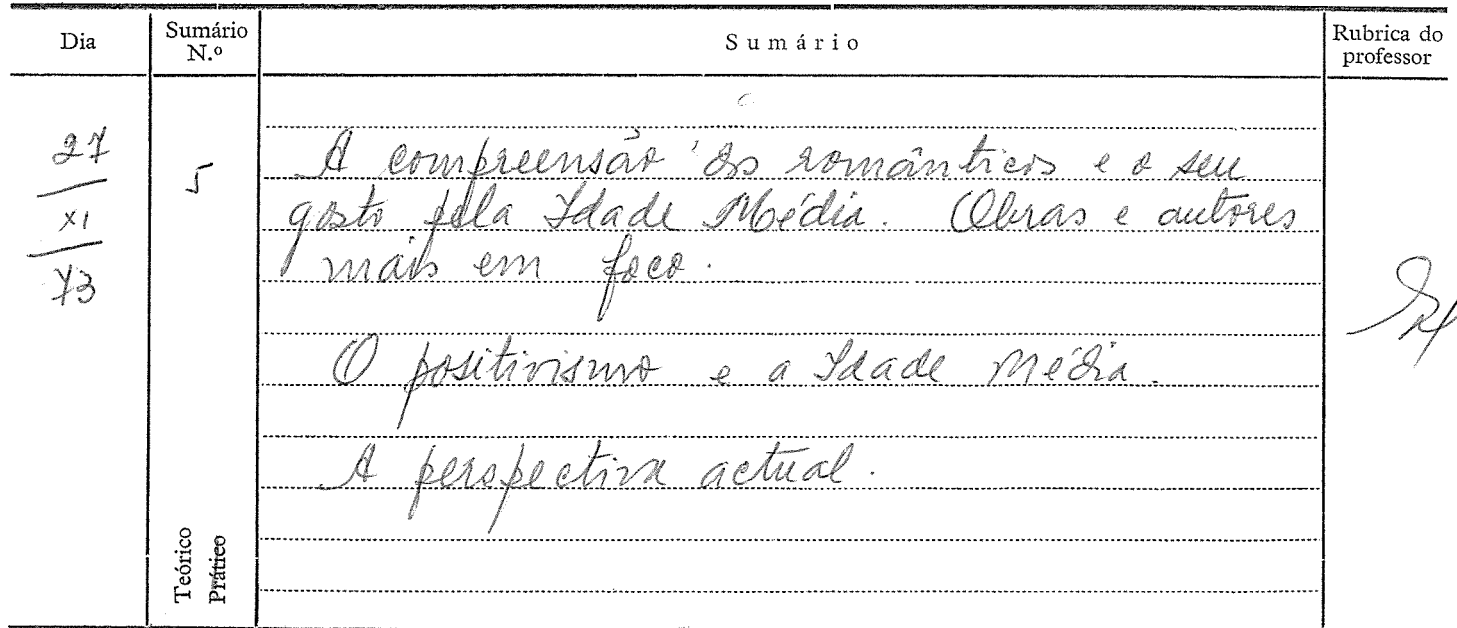 Dia
Sumário N.º
Sumário
Rubrica do professor
27
XI
73
5
A compreensão dos românticos e o seu
gosto pela Idade Média. Obras e autores
mais em foco.
O positivismo e a Idade Média.
A perspectiva actual.
Teórico
Prático